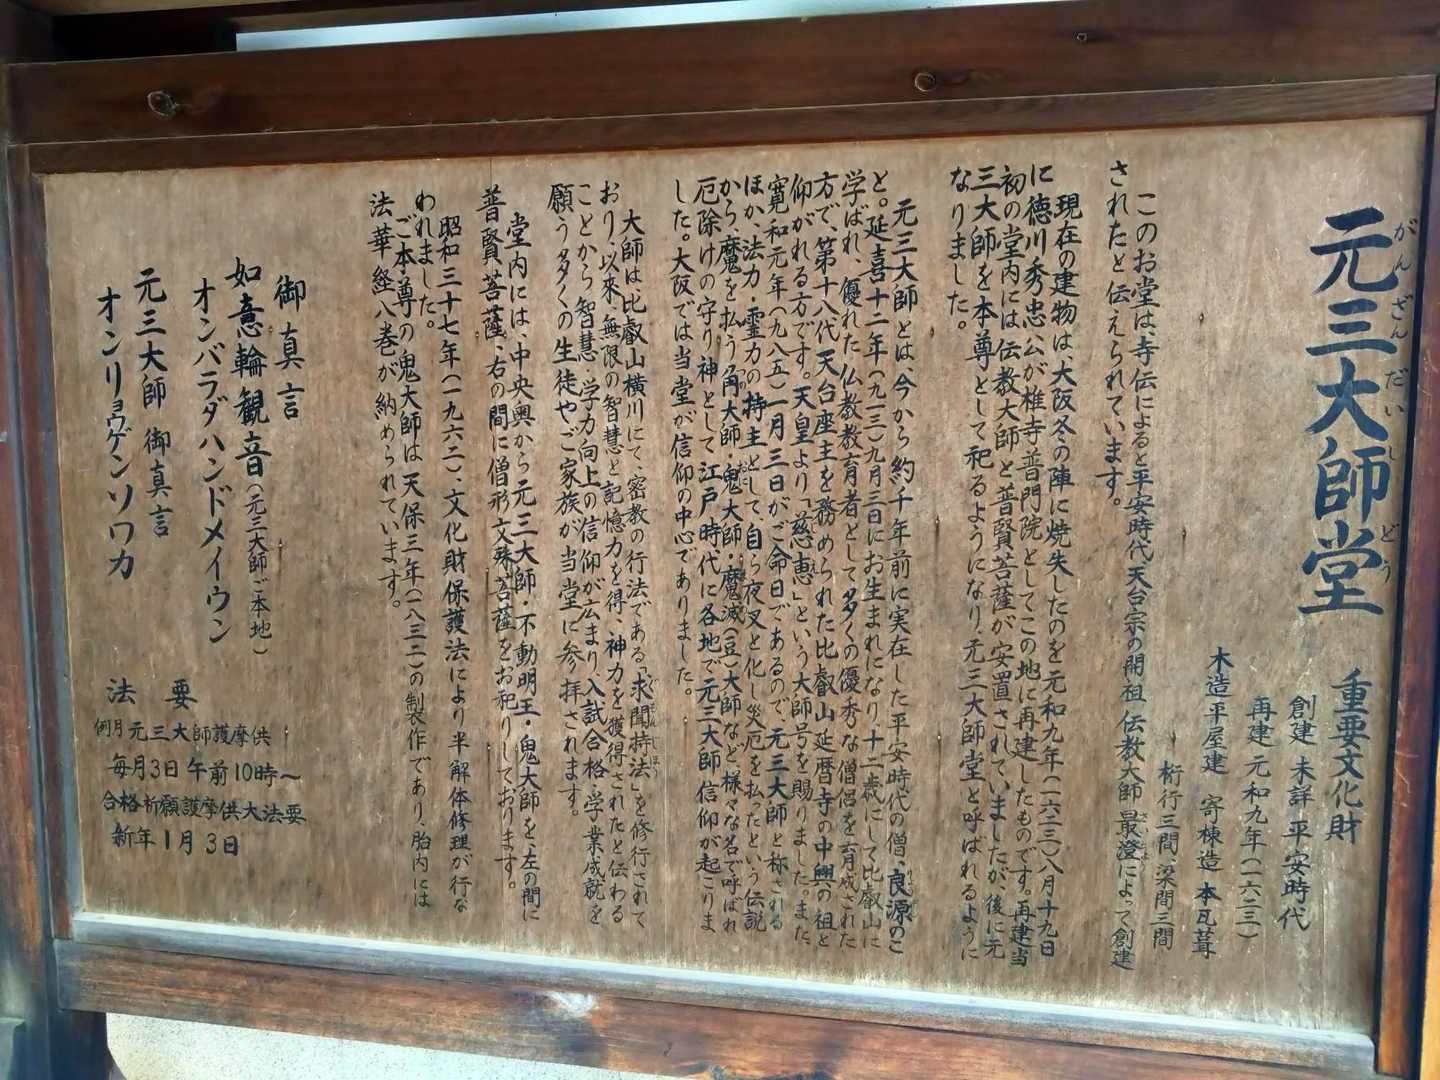 元三大師堂
がんざんだいしどう
重要文化財
創建 未詳 平安時代
再建 元和九年(一六二三)
木造平屋建 寄棟造 本瓦葺
桁行三間、梁間三間
このお堂は、寺伝によると平安時代天台宗の開祖 伝教大師 最澄によって創建
されたと伝えられています。
現在の建物は、大阪冬の陣に焼失したのを元和九年(一六二三)八月十九日
に徳川秀忠公が椎寺普門院としてこの地に再建したものです。再建当
初の堂内には伝教大師と普賢菩薩が安置されていましたが、後に元
三大師を本尊として祀るようになり、元三大師堂と呼ばれるように
なりました。
元三大師とは、今から約千年前に実在した平安時代の僧、良源のこ
と。延喜十二年(九一三)九月三日にお生まれになり、十二歳にして比叡山に
学ばれ、優れた仏教教育者として多くの優秀な僧侶を育成された
方で、第十八代天台座主を務められた比叡山延暦寺の中興の祖と
仰がれる方です。天皇より「慈恵」という大師号を賜りました。また、
寛和元年(九八五)一月三日がご命日であるので、元三大師と称される
ほか、法力・霊力の持主として、自ら夜叉と化し災厄を払ったという伝説
から、魔を払う角大師・鬼大師・魔滅(豆)大師など、様々な名で呼ばれ
厄除けの守り神として江戸時代に各地で元三大師信仰が起こりま
した。大阪では当堂が信仰の中心でありました。
大師は比叡山横川にて、密教の行法である「求聞持法」を修行されて
おり、以来、無限の智慧と記憶力を得、神力を獲得されたと伝わる
ことから智慧・学力向上の信仰が広まり、入試合格、学業成就を
願う多くの生徒やご家族が当堂に参拝されます。
堂内には、中央奥から元三大師・不動明王・鬼大師を、左の間に
普賢菩薩、右の間に僧形文殊菩薩をお祀りしております。
昭和三十七年(一九六二)、文化財保護法により半解体修理が行な
われました。
ご本尊の鬼大師は天保三年(一八三二)の製作であり、胎内には
法華経八巻が納められています。
御真言
如意輪観音(元三大師ご本地)
オンバラダハンドメイウン
元三大師 御真言
オンリョウゲンソワカ
法要
例月元三大師護摩供
毎月3日午前10時~
合格祈願護摩供大法要
新年1月3日